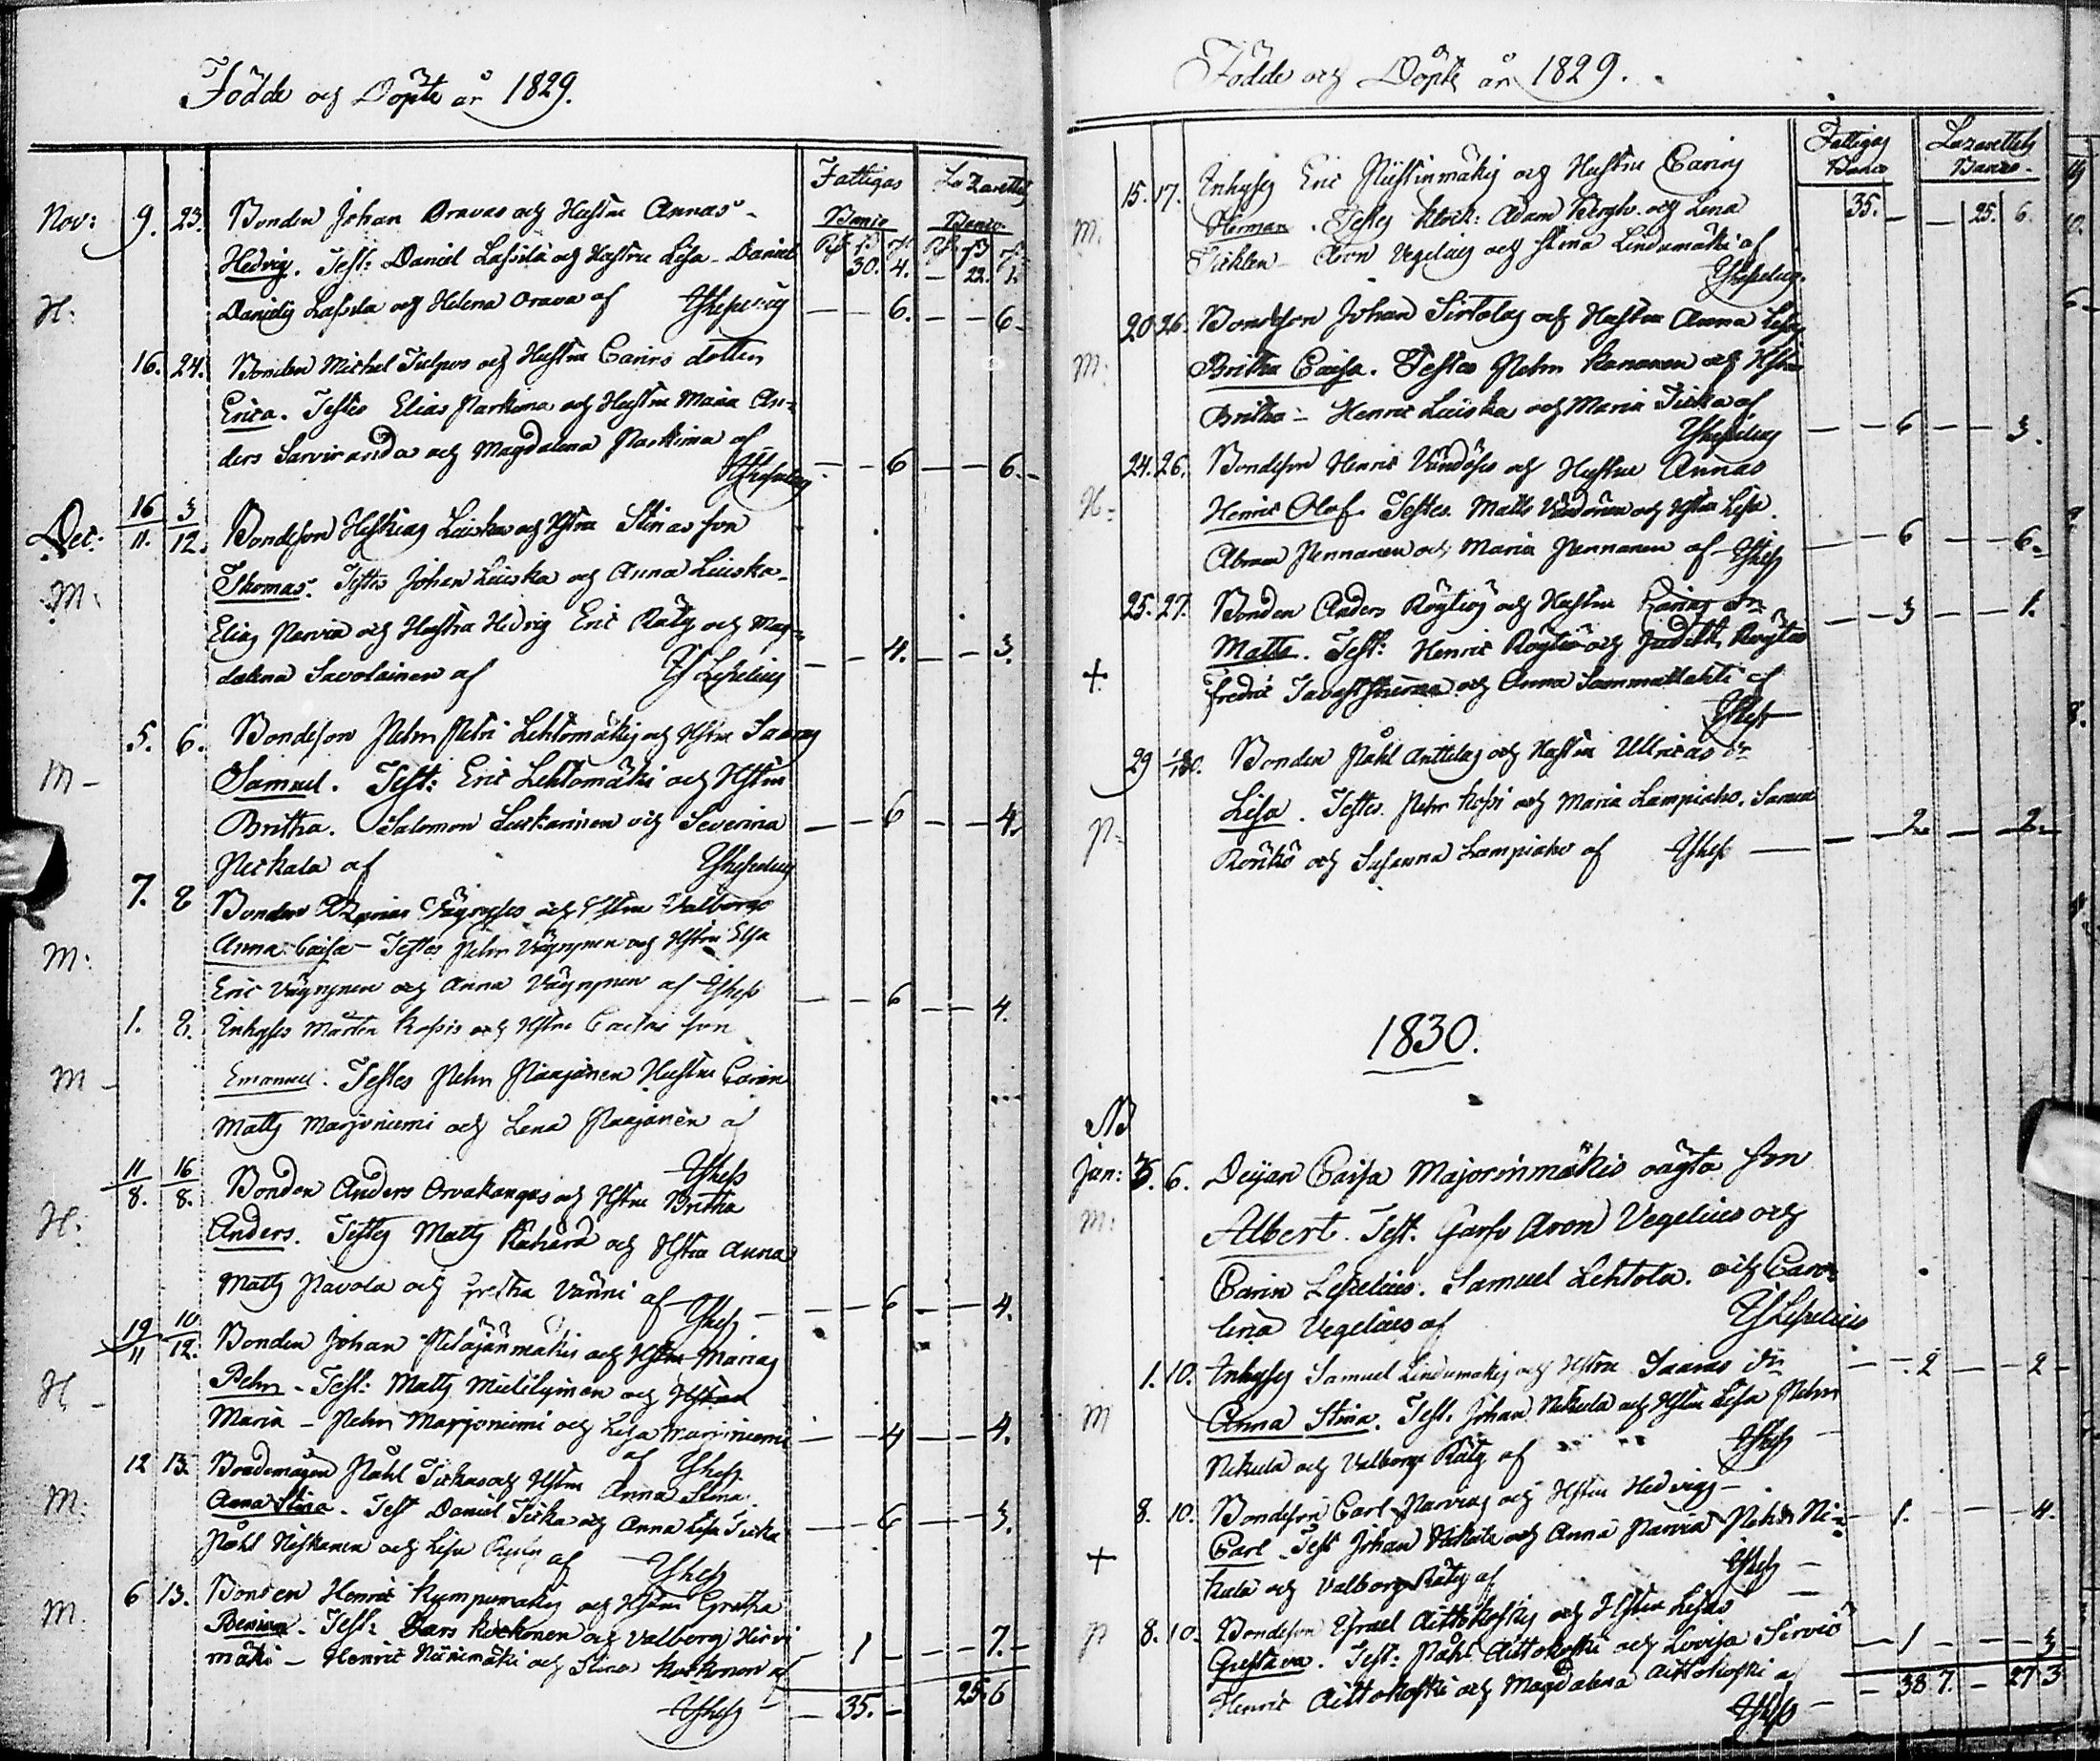 Födde och Döpte år 1829.
Fattigas Lazarettets
Banco Banco
Nov: 9. 23. Bonden Johan Oravas och Hustru Annas
Hedvig. Test: Daniel Lassila och Hustru Lisa - Daniel 30. 4. - 22. 1.
H: Danielis Lassila och Helena Orava af — — 6. — — 6.
16. 24. Bonden Michel och Hustru Carins dotter
Erica. Testes Elias Parkima och Hustru Maria An-
ders Sarviranda och Magdalena Parkima af
— — 6 — — 6.
Dec: 16/11. 3/12. Bondeson Heskias Luiska och Hstru Stinas son
M: Thomas. Testes Johan Luiska och Anna Luiska.
Elias Parvia och Hustru Hedvig Eric Räty och Mag-
dalena Savolainen af — — 4. — — 3.
5. 6. Bondeson Pehr Petri Lehtomäkis och Hstru Saaras
M - Samuel. Test: Eric Lehtomäki och Hstru
Britha. Salomon Luskarinen och Severina — — 6 — — 4.
Neckala af
7. 8 Bonden Väyrynes och Hstru Valborgs
M: Anna Caisa - Testes Pehr Väyrynen och Hstru Elsa
Eric Väyrynen och Anna Väyrynen af — — 6 — — 4.
1. 8. Inhyses Mårten Kossis och Hstru son
M - Emanuel. Testes Pehr Paajanen Hustru Carin
Matts Marjoniemi och Lena Paajanen af
11/8. 16/8. Bonden Anders Orvakangas och Hstru Britha
H: Anders. Testes Matts och Hstru Anna
Matts Pavola och Gretha Vänni af — — 6 — — 4.
19/11 10/12. Bonden Johan Petäjänmäkis och Hstru Marias
H - Pehr - Test: Matts Mielityinen och Hstrun
Maria - Pehr Marjoniemi och Lisa Marjoniemi — — 4 — — 4.
af
12 13. Påhl Tiskas och Hstru Anna Stina
M: Anna Stina. Test Daniel Tiska och Anna Lisa Tiska — — 6 — — 3.
Påhl Niskanen och Lisa af
6 13. Bonden Henric Kumpumäkis och Hstru Gretha
M. Test: Lars Korkonen och Valborg Hirvi — 1 — — — 7. —
mäki - Henric Niinimäki och Stina Korkonen af
— 35. — 25 6
Födde och Döpte år 1829.
Fattigas Lazarettets
Banco Banco
15. 17. Inhyses Eric Püstinmäkis och Hustru Carins 35. — — 25. 6.
M. Herman. Testes Klock: Adam Bergh. och Lena
Aron Vegelius och Stina Lindumäki af
20 26. Bondeson Johan Sirtolas och Hustru Anna Lisas
M: Britha Caisa. Testes Pehr Kananen och Hstru
Britha - Henric Luiska och Maria Tiska af
— — 6 — — 3.
24. 26. Bondeson Henric Vändöses och Hustru Annas
H: Henric Olof. Testes. Matts Vändönen och Hstru Lisa
Abram Pennanen och Maria Pennanen af — — 6 — — 6.
25. 27. Bonden Anders Röytiös och Hustru Carins son — — 3 — — 1.
Matts. Test: Henric Röytiö och Judith Röytiö
+ Fredric Tavastsherna och Anna Sammallahti af
29 30. Bonden Påhl Anttilas och Hustru Ulricas dr
Lisa. Testes. Pehr Kossi och Maria Lampiaho. Samuel
P: Rönkö och Susanna Lampiaho af — — 2. — — 2.
1830.
NB
Jan: 3. 6. Deijan Caisa Majorinmäkis oägta son
M: Albert. Test. Aron Vegelius och
Carin Lepelius. Samuel Lehtola. och Caro-
lina Vegelius af
1. 10. Inhyses Samuel Lindumäkis och Hstru Saaras dr — — 2 — — 2
M Anna Stina. Test. Johan Nikula och Hstru Lisa Pehr
Nikula och Valborg Räty af
8. 10. Bondeson Carl Parvias och Hstru Hedvigs — 1. — — 4.
+ Carl. Test Johan Nikula och Anna Parvia Pehr Ni-
kula och Valborg Räty af
P 8. 10. Bondeson Israel Aittokoskis och Hstru Lisas
Gustava. Test: Påhl Aittokoski och Lovisa Sirviö — 1 — — 3
Henric Aittokoski och Magdalena Aittokoski af — 38 7. — 27 3